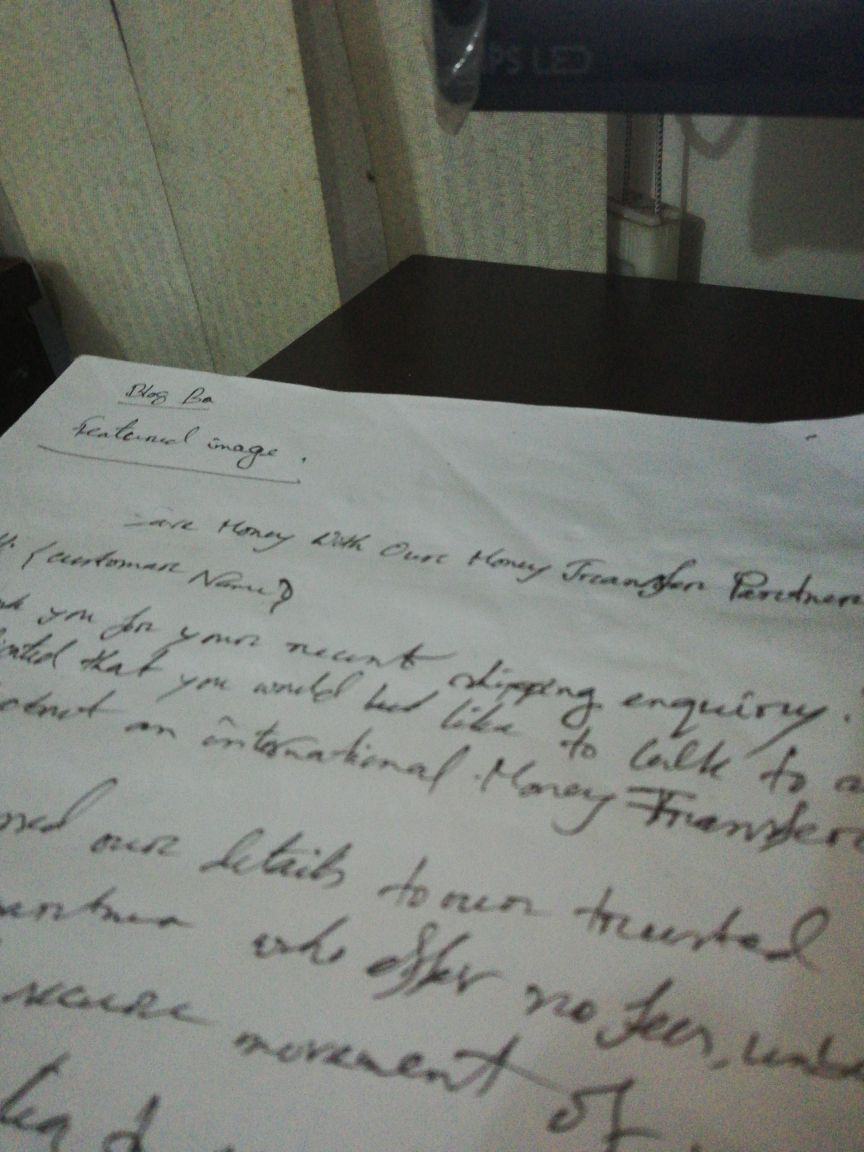 IPS LED
Blog Ba
Featured image.
Save Money With Our Money Transfer Partner
{customer Name}
you for your recent shipping enquiry.
that you would but like to talk to a
an international Money Transfer
our details to our trusted
who offer no fees,
secure movement of